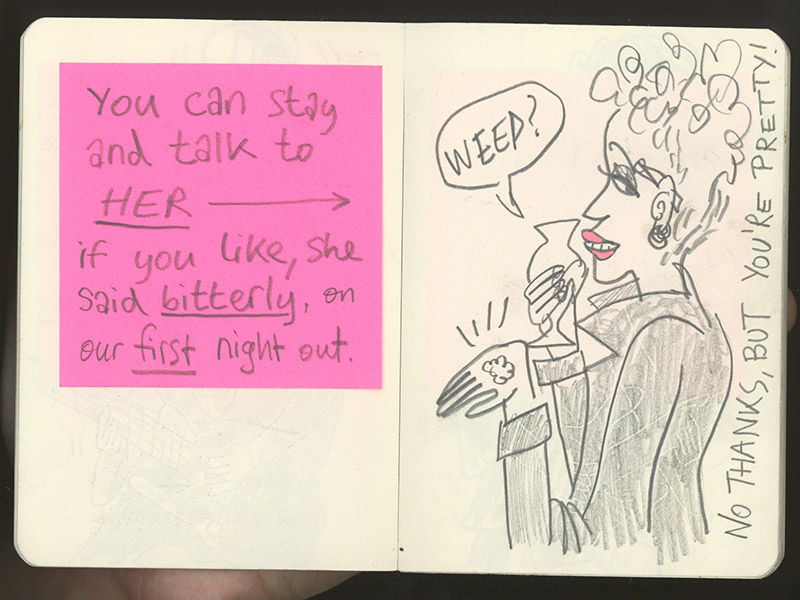 You can stay
and talk to
HER
if you like, she
said bitterly, on
our first night out.
WEED?
NO THANKS, BUT YOU'RE PRETTY!